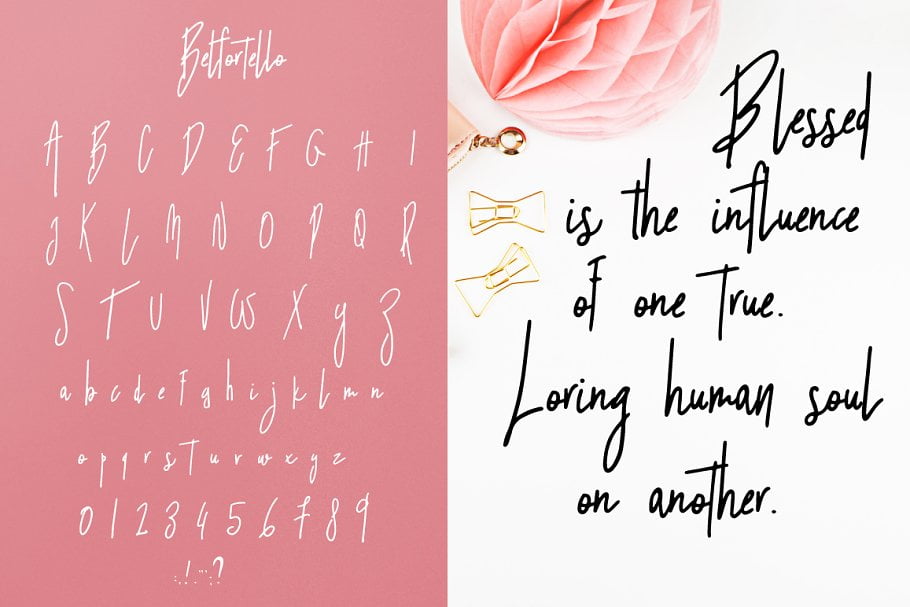 Belfortello
A B C D E F G H I
J K L M N O P Q R
S T U V W X Y Z
a b c d e f g h i j k l m n
o p q r s t u r w x y z
0 1 2 3 4 5 6 7 8 9
Blessed
is the influence
of one true.
Loring human soul
on another.